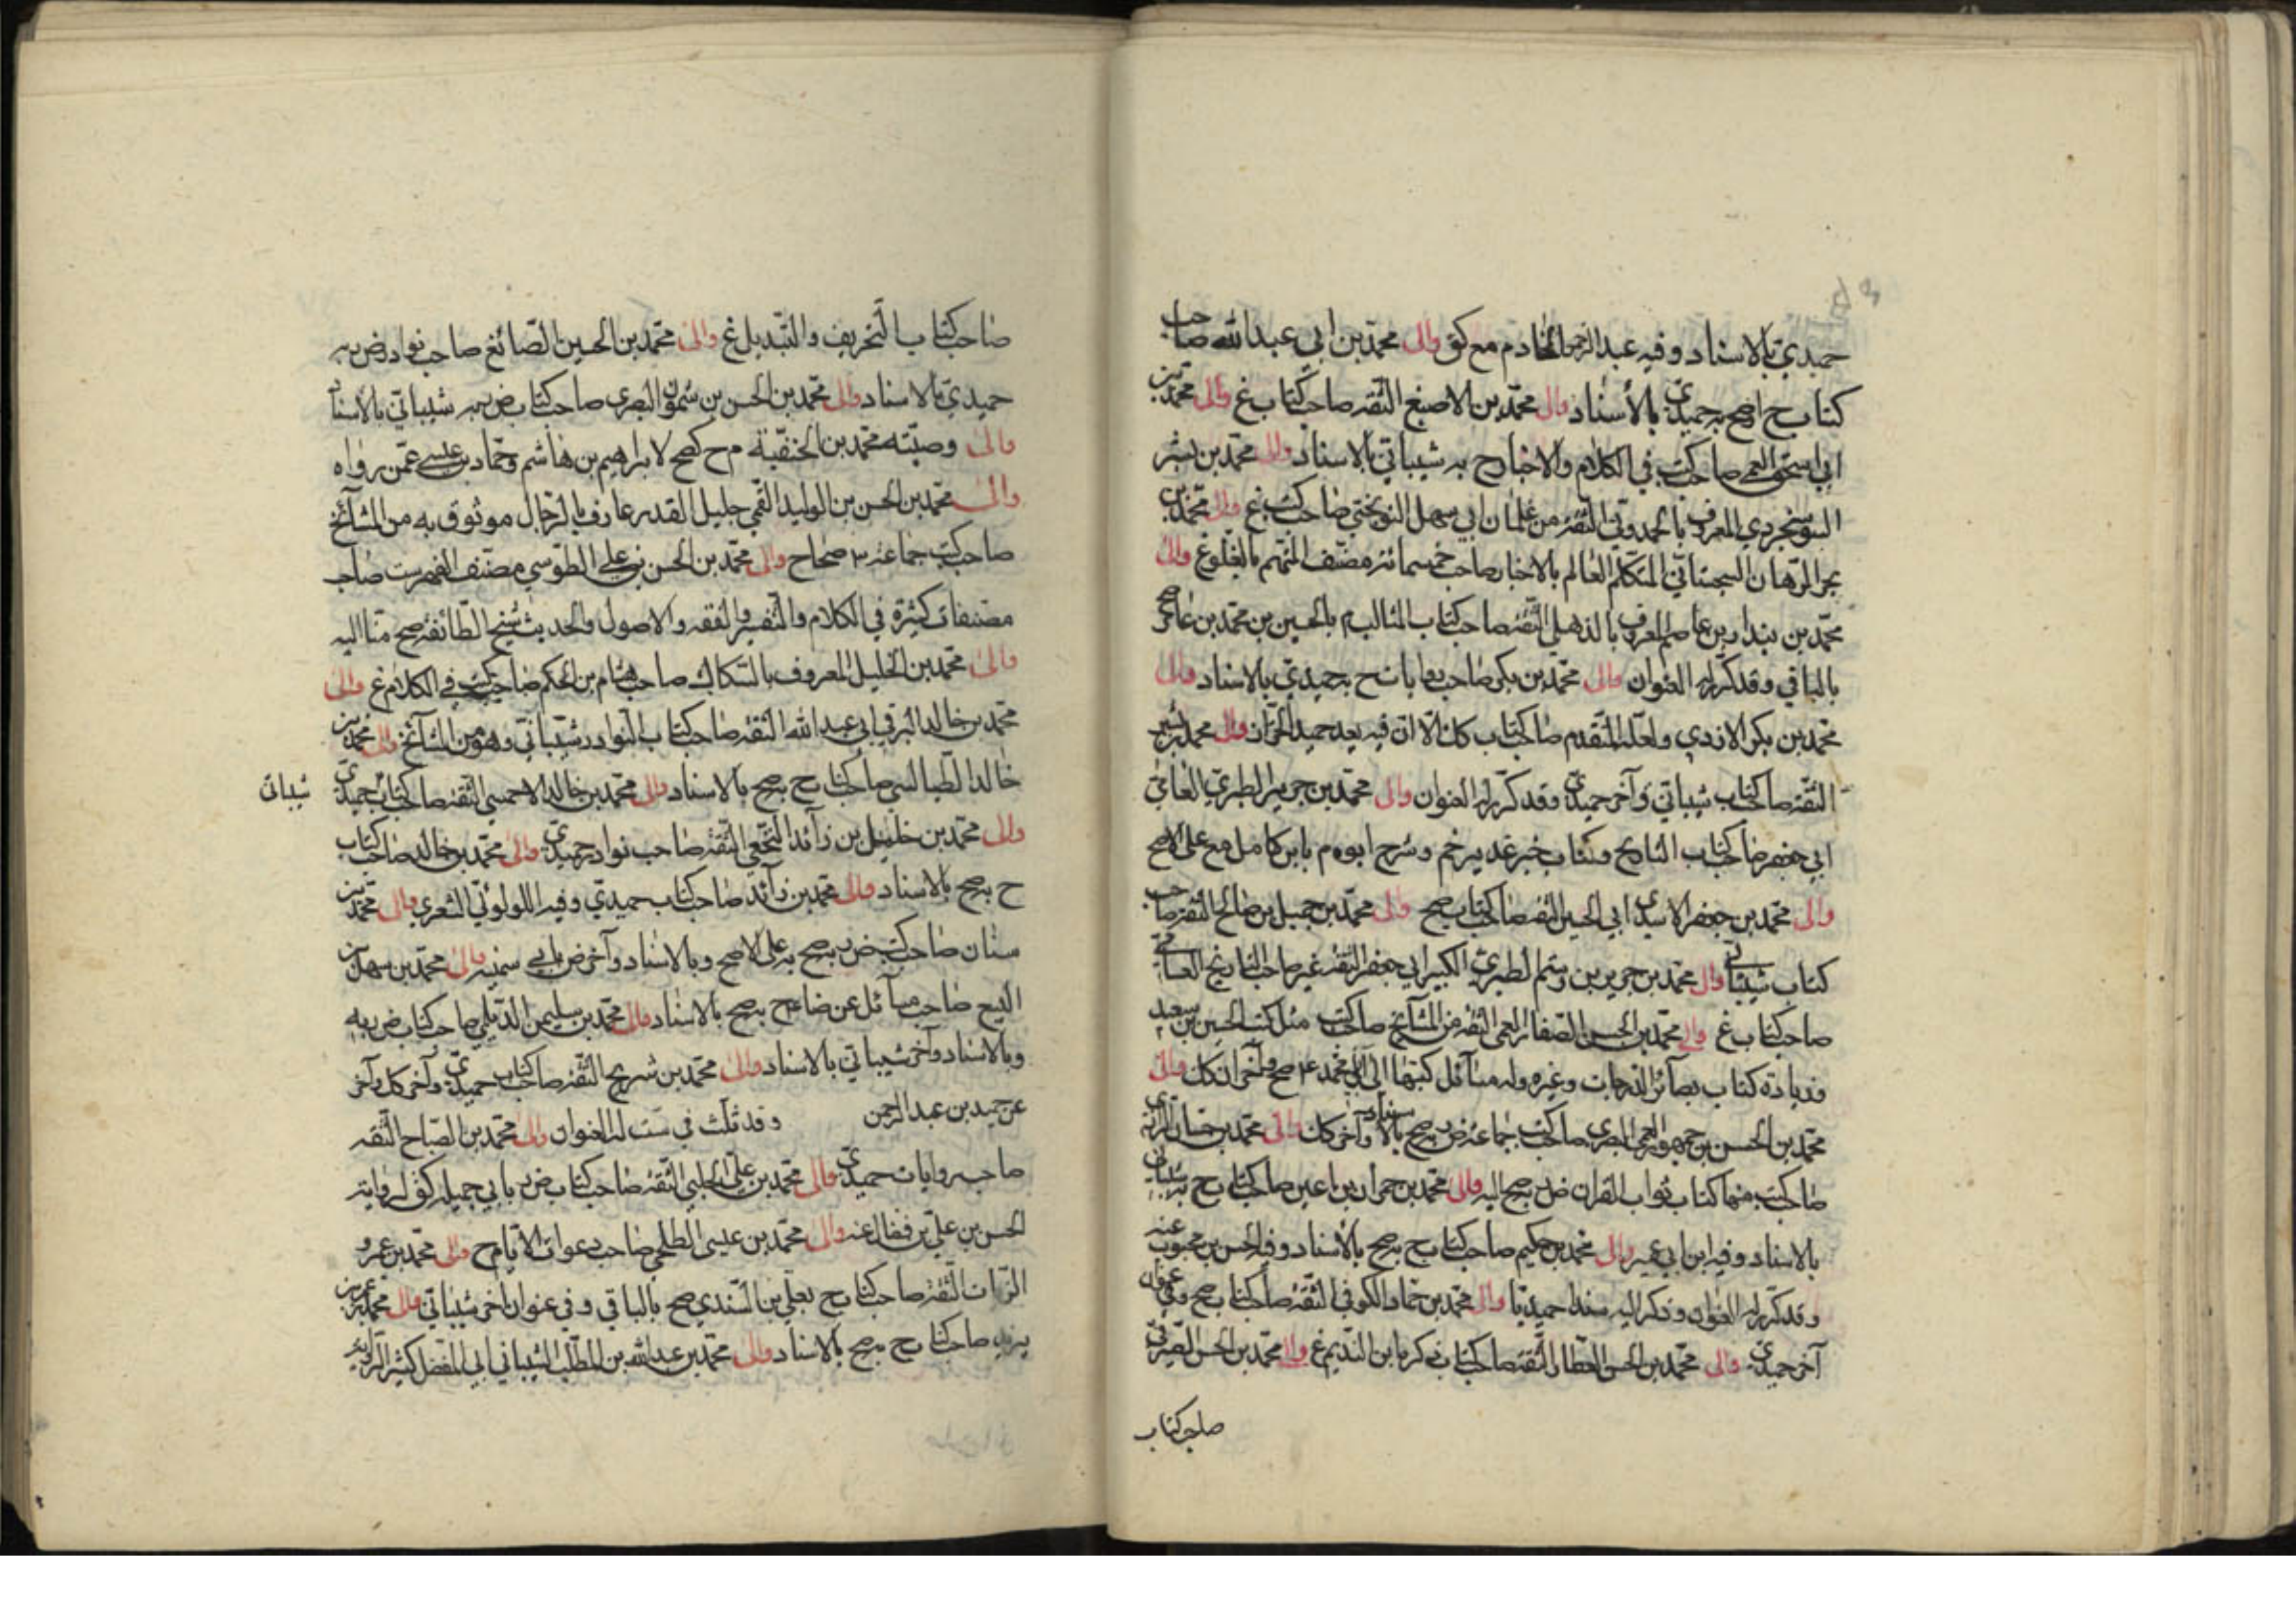 حميدي بالاسناد وفيه عبد الرحمن الخادم مع كق والى محمد بن ابي عبد الله صاحب
كتاب ح اصح به حميدي بالأسناد والى محمد بن الاصبغ الثقة صاحب كتاب غ والى محمد بن
ابي اسحق القمي صاحب كتب في الكلام والاخبار ح به شيباني بالاسناد والى محمد بن بشر
السوسنجردي المعروف بالحمدوني الثقة من غلمان ابي سهل النوبختي صاحب كتب غ والى محمد بن
بحر الرهان السجستاني المتكلم العالم بالاخبار صاحب خمسمائة مصنف المتهم بالغلو غ والى
محمد بن بندار بن عاصم المعروف بالذهلي الثقة صاحب كتاب المثالب م بالحسين بن محمد بن عامر صح
بالباقي وقد كرر له العنوان والى محمد بن بكر صاحب روايات ح حميدي بالاسناد والى
محمد بن بكر الازدي ولعله المتقدم صاحب كتاب كل الا ان فيه بعد حميد الخزان والى محمد بن
الثقة صاحب كتاب شيباني وآخر حميدي وقد كرر له العنوان والى محمد بن جرير الطبري العامي
ابي جعفر صاحب كتاب التاريخ وكتاب خبر غدير خم وشرح ابوه م بابن كامل مع على الاصح
والى محمد بن جعفر الاسدي ابي الحسين الثقة صاحب كتاب صح والى محمد بن جميل بن صالح الثقة صاحب
كتاب شيباني والى محمد بن جرير بن رستم الطبري الكبير ابي جعفر الثقة غير صاحب التاريخ العامي
صاحب كتاب غ والى محمد بن الحسن الصفار القمي الثقة من المشايخ صاحب كتب مثل كتب الحسين بن سعيد
وزيادة كتاب بصائر الدرجات وغيره وله مسائل كتبها الى ابي محمد ع صح وآخران كل والى
محمد بن الحسن بن جمهور العمي البصري صاحب كتب جماعة ض صح بالاسناد وآخر كل والى محمد بن حسان الرازي
صاحب كتب منها كتاب ثواب القران ض صح اليه والى محمد بن حمران بن اعين صاحب كتاب ح به شيباني
بالاسناد وفيه ابن ابي عمير والى محمد بن حكيم صاحب كتاب ح به صح بالأسناد وفيه الحسن بن محبوب عنه
وقد كرر له العنوان وذكر اليه سندا حميديا والى محمد بن حماد الكوفي الثقة صاحب كتاب صح وفي عنوان
آخر حميدي والى محمد بن الحسن العطار الثقة صاحب كتاب ذكره ابن النديم غ والى محمد بن الحسن الصيرفي
صاحب كتاب
صاحب كتاب التحريف والتبديل غ والى محمد بن الحسين الصائغ صاحب نوادر ض به
حميدي بالاسناد والى محمد بن الحسن بن شمون البصري صاحب كتاب ض به شيباني بالأسناد
والى وصيته محمد بن الحنفية م ح كصح لابراهيم بن هاشم وحماد بن عيسى عمن رواه
والى محمد بن الحسن بن الوليد القمي جليل القدر عارف بالرجال موثوق به من المشائخ
صاحب كتب جماعة ٣ صحاح والى محمد بن الحسن بن علي الطوسي مصنف الفهرست صاحب
مصنفات كثيرة في الكلام والتفسير والفقه والاصول والحديث شيخ الطائفة صح منا اليه
والى محمد بن الخليل المعروف بالسكاك صاحب هشام بن الحكم صاحب كتب في الكلام غ والى
محمد بن خالد البرقي ابي عبد الله الثقة صاحب كتاب النوادر شيباني وهو من المشائخ والى محمد بن
خالد الطيالسي صاحب كتاب ح به صح بالاسناد والى محمد بن خالد الاحمسي الثقة صاحب كتاب حميدي
شيباني
والى محمد بن خليل بن زائد النخعي الثقة صاحب نوادر حميدي والى محمد بن خالد صاحب كتاب
ح به صح بالاسناد والى محمد بن زائد صاحب كتاب حميدي وفيه اللولوئي الشعري والى محمد بن
سنان صاحب كتب ض به صح به على الاصح وبالاسناد وآخر ض بابي سمينة والى محمد بن سهل بن
اليسع صاحب مسائل عن ضا ع ح به صح بالاسناد والى محمد بن سليمن الديلمي صاحب كتاب ض به
وبالاسناد وآخر شيباني بالاسناد والى محمد بن شريح الثقة صاحب كتاب حميدي وآخر كل وآخر
عن حميد بن عبد الرحمن وقد ثلث في ست له العنوان والى محمد بن الصباح الثقه
صاحب روايات حميدي والى محمد بن علي الحلبي الثقة صاحب كتاب ض بابي جميلة كق لرواية
الحسن بن علي بن فضال عنه والى محمد بن عيسى الطلحي صاحب دعوات الايام ح والى محمد بن عمرو
الزيات الثقة صاحب كتاب ح بعلي بن السندي صح بالباقي وفي عنوان آخر شيباني والى محمد بن عمر بن
يزيد صاحب كتاب ح به صح بالاسناد والى محمد بن عبد الله بن المطلب الشيباني ابي المفضل كثير الرواية